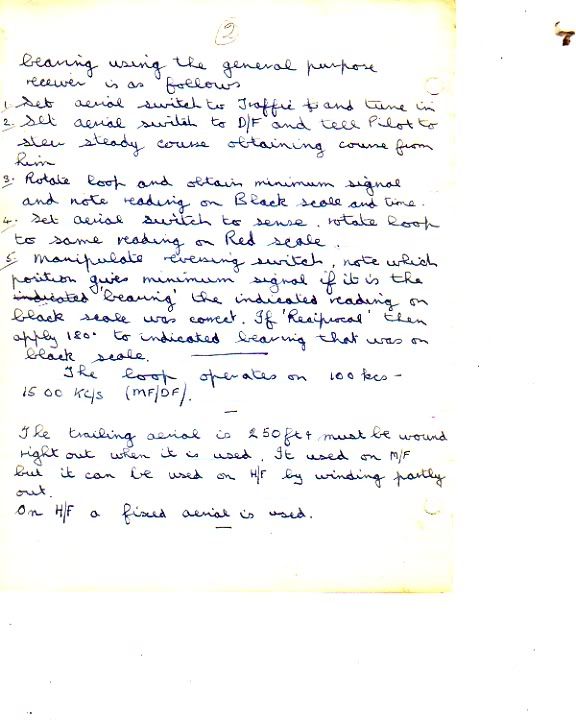 2
7
bearing using the general purpose
receiver is as follows
1. Set aerial switch to Traffic & and tune in
2. Set aerial switch to D/F and tell Pilot to
steer steady course obtaining course from
him
3. Rotate loop and obtain minimum signal
and note reading on Black scale and time.
4. Set aerial switch to sense, rotate loop
to same reading on Red scale.
5. Manipulate reversing switch, note which
position gives minimum signal if it is the
indicated 'bearing' the indicated reading on
black scale was correct. If 'Reciprocal' then
apply 180° to indicated bearing that was on
black scale.
The loop operates on 100 kcs -
1500 Kc/s (MF/DF).
The trailing aerial is 250ft + must be wound
right out when it is used. It used on M/F
but it can be used on H/F by winding partly
out.
On H/F a fixed aerial is used.